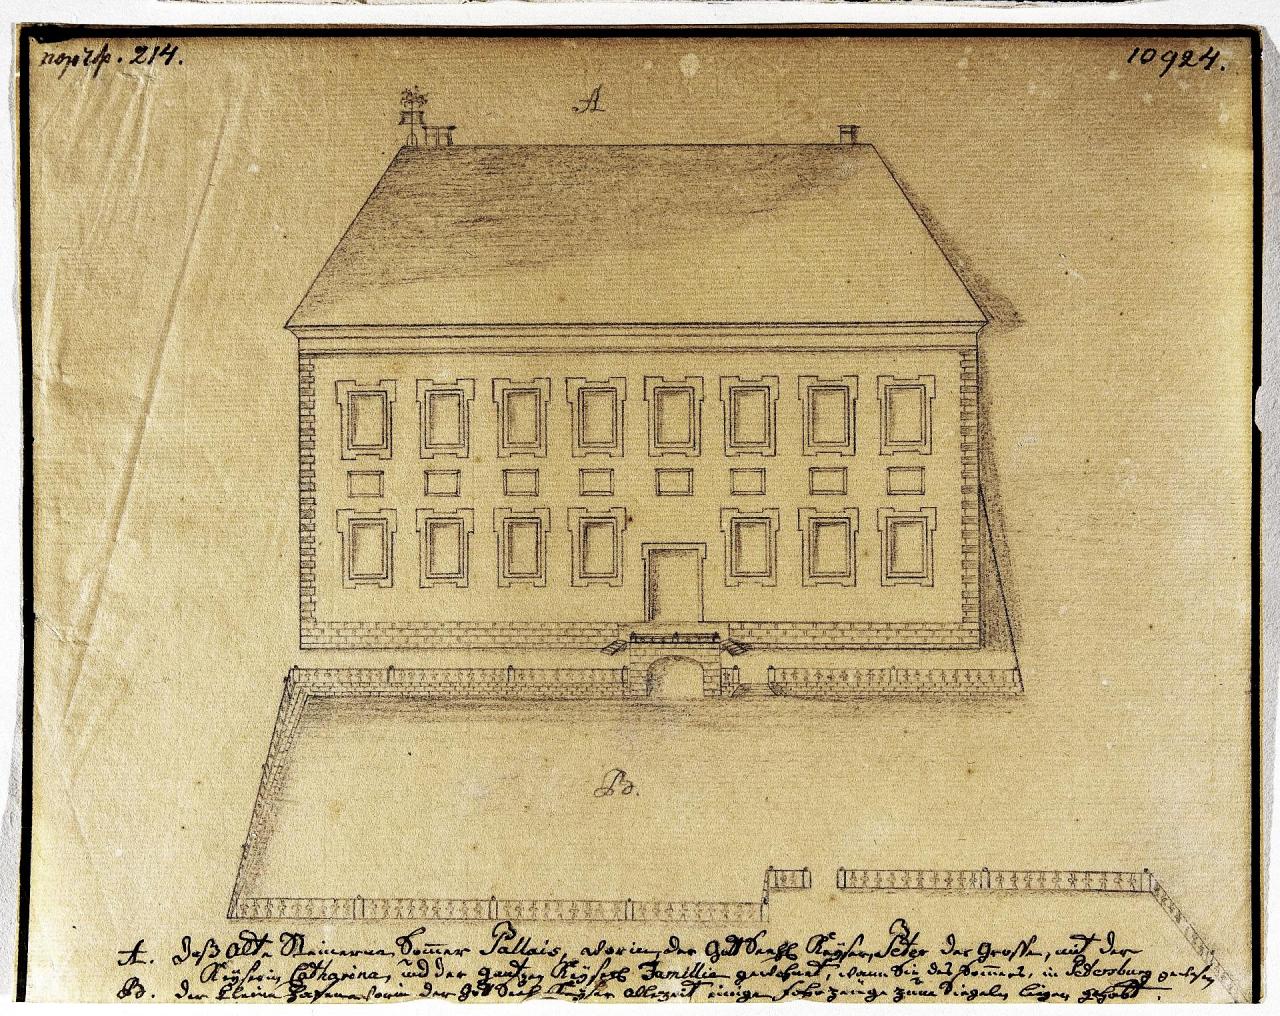 портф. 214.
10924.
A
B.
A. daß Alte Steinerne Som̅er Pallais, worin der Gott Seehl. Keyser Peter der Grosse, mit der
Keyserin Catharina, und der gantzen Keyserl. Famillie gewohnet, wann Sie des Som̅ers, in Petersburg gewesen
B. der kleine Hafen worin der Gott Seehl. Keyser allezeit einige Fahrzeuge zum Siegeln liegen gehabt.